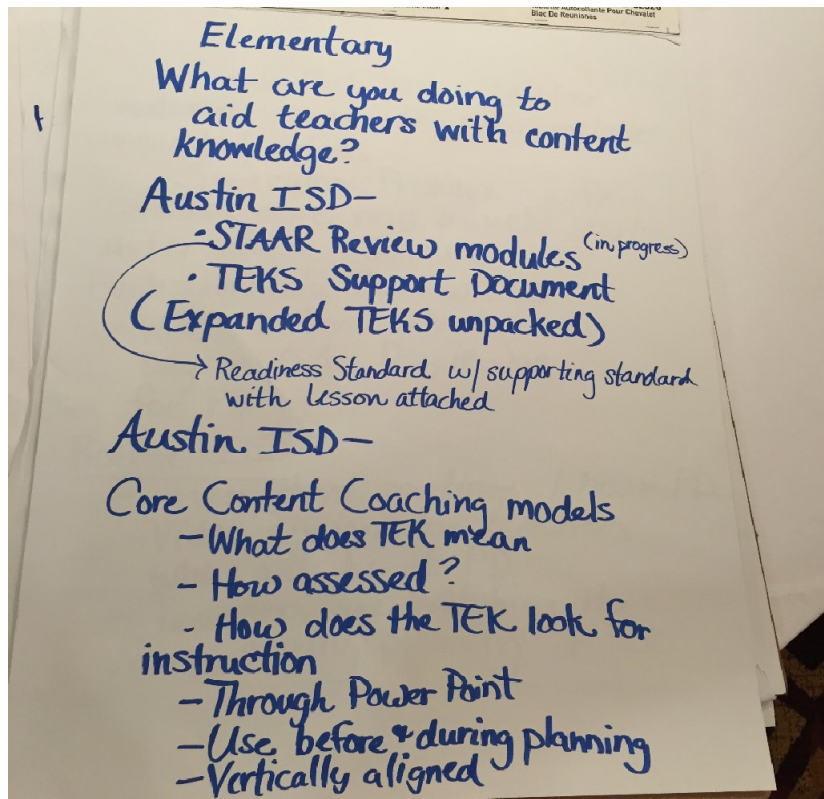 Autocollante Pour Chevalet
Bloc De Reunionss
Elementary
What are you doing to
aid teachers with content
knowledge?
Austin ISD-
• STAAR Review modules (in progress)
• TEKS Support Document
(Expanded TEKS unpacked)
→ Readiness Standard w/ supporting standard
with lesson attached
Austin ISD-
Core Content Coaching models
- What does TEK mean
- How assessed?
- How does the TEK look for
instruction
- Through Power Point
- Use before & during planning
- Vertically aligned